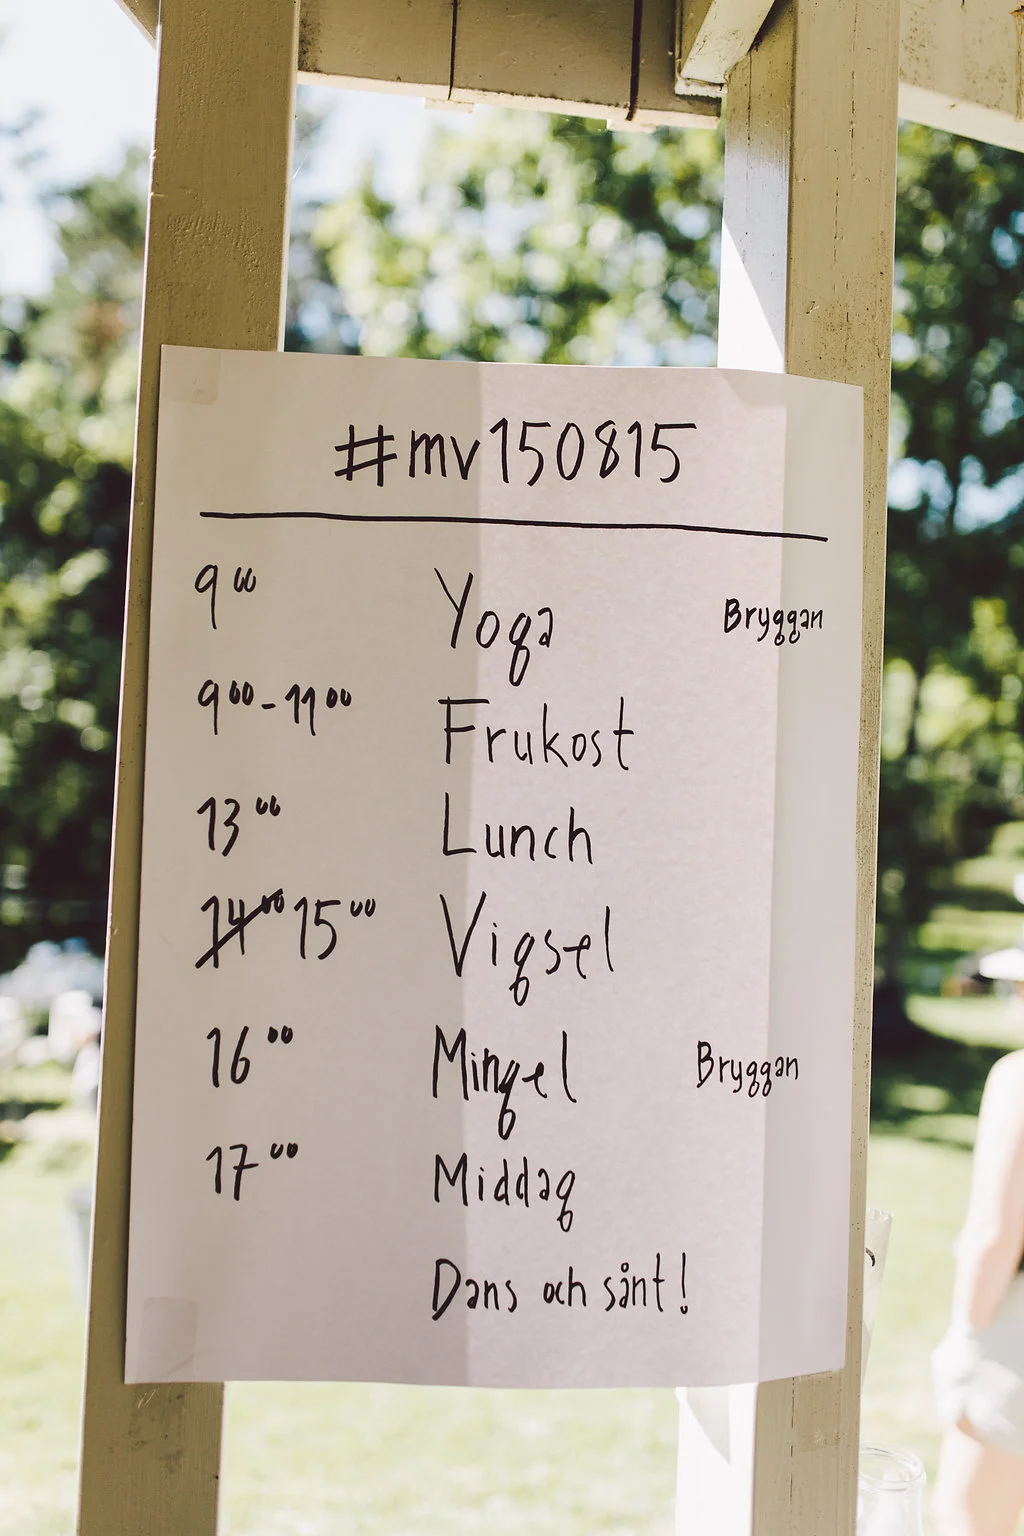 #mv150815
9⁰⁰ Yoga Bryggan
9⁰⁰-11⁰⁰ Frukost
13⁰⁰ Lunch
14⁰⁰ 15⁰⁰ Vigsel
16⁰⁰ Mingel Bryggan
17⁰⁰ Middag
Dans och sånt!